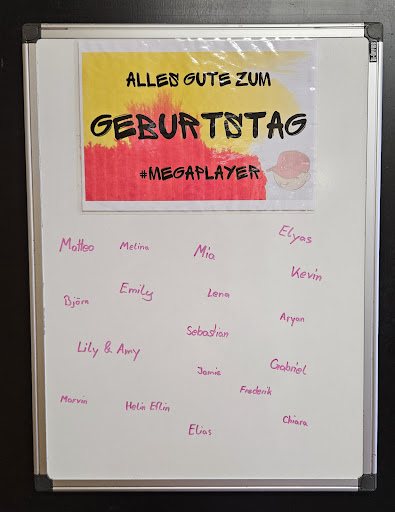 ALLES GUTE ZUM
GEBURTSTAG
#MEGAPLAYER
Elyas
Matteo Melina Mia
Kevin
Emily Lena
Björn
Aryan
Sebastian
Lily & Amy
Gabriel
Jamie
Frederik
Marvin Helin Eflin
Chiara
Elias